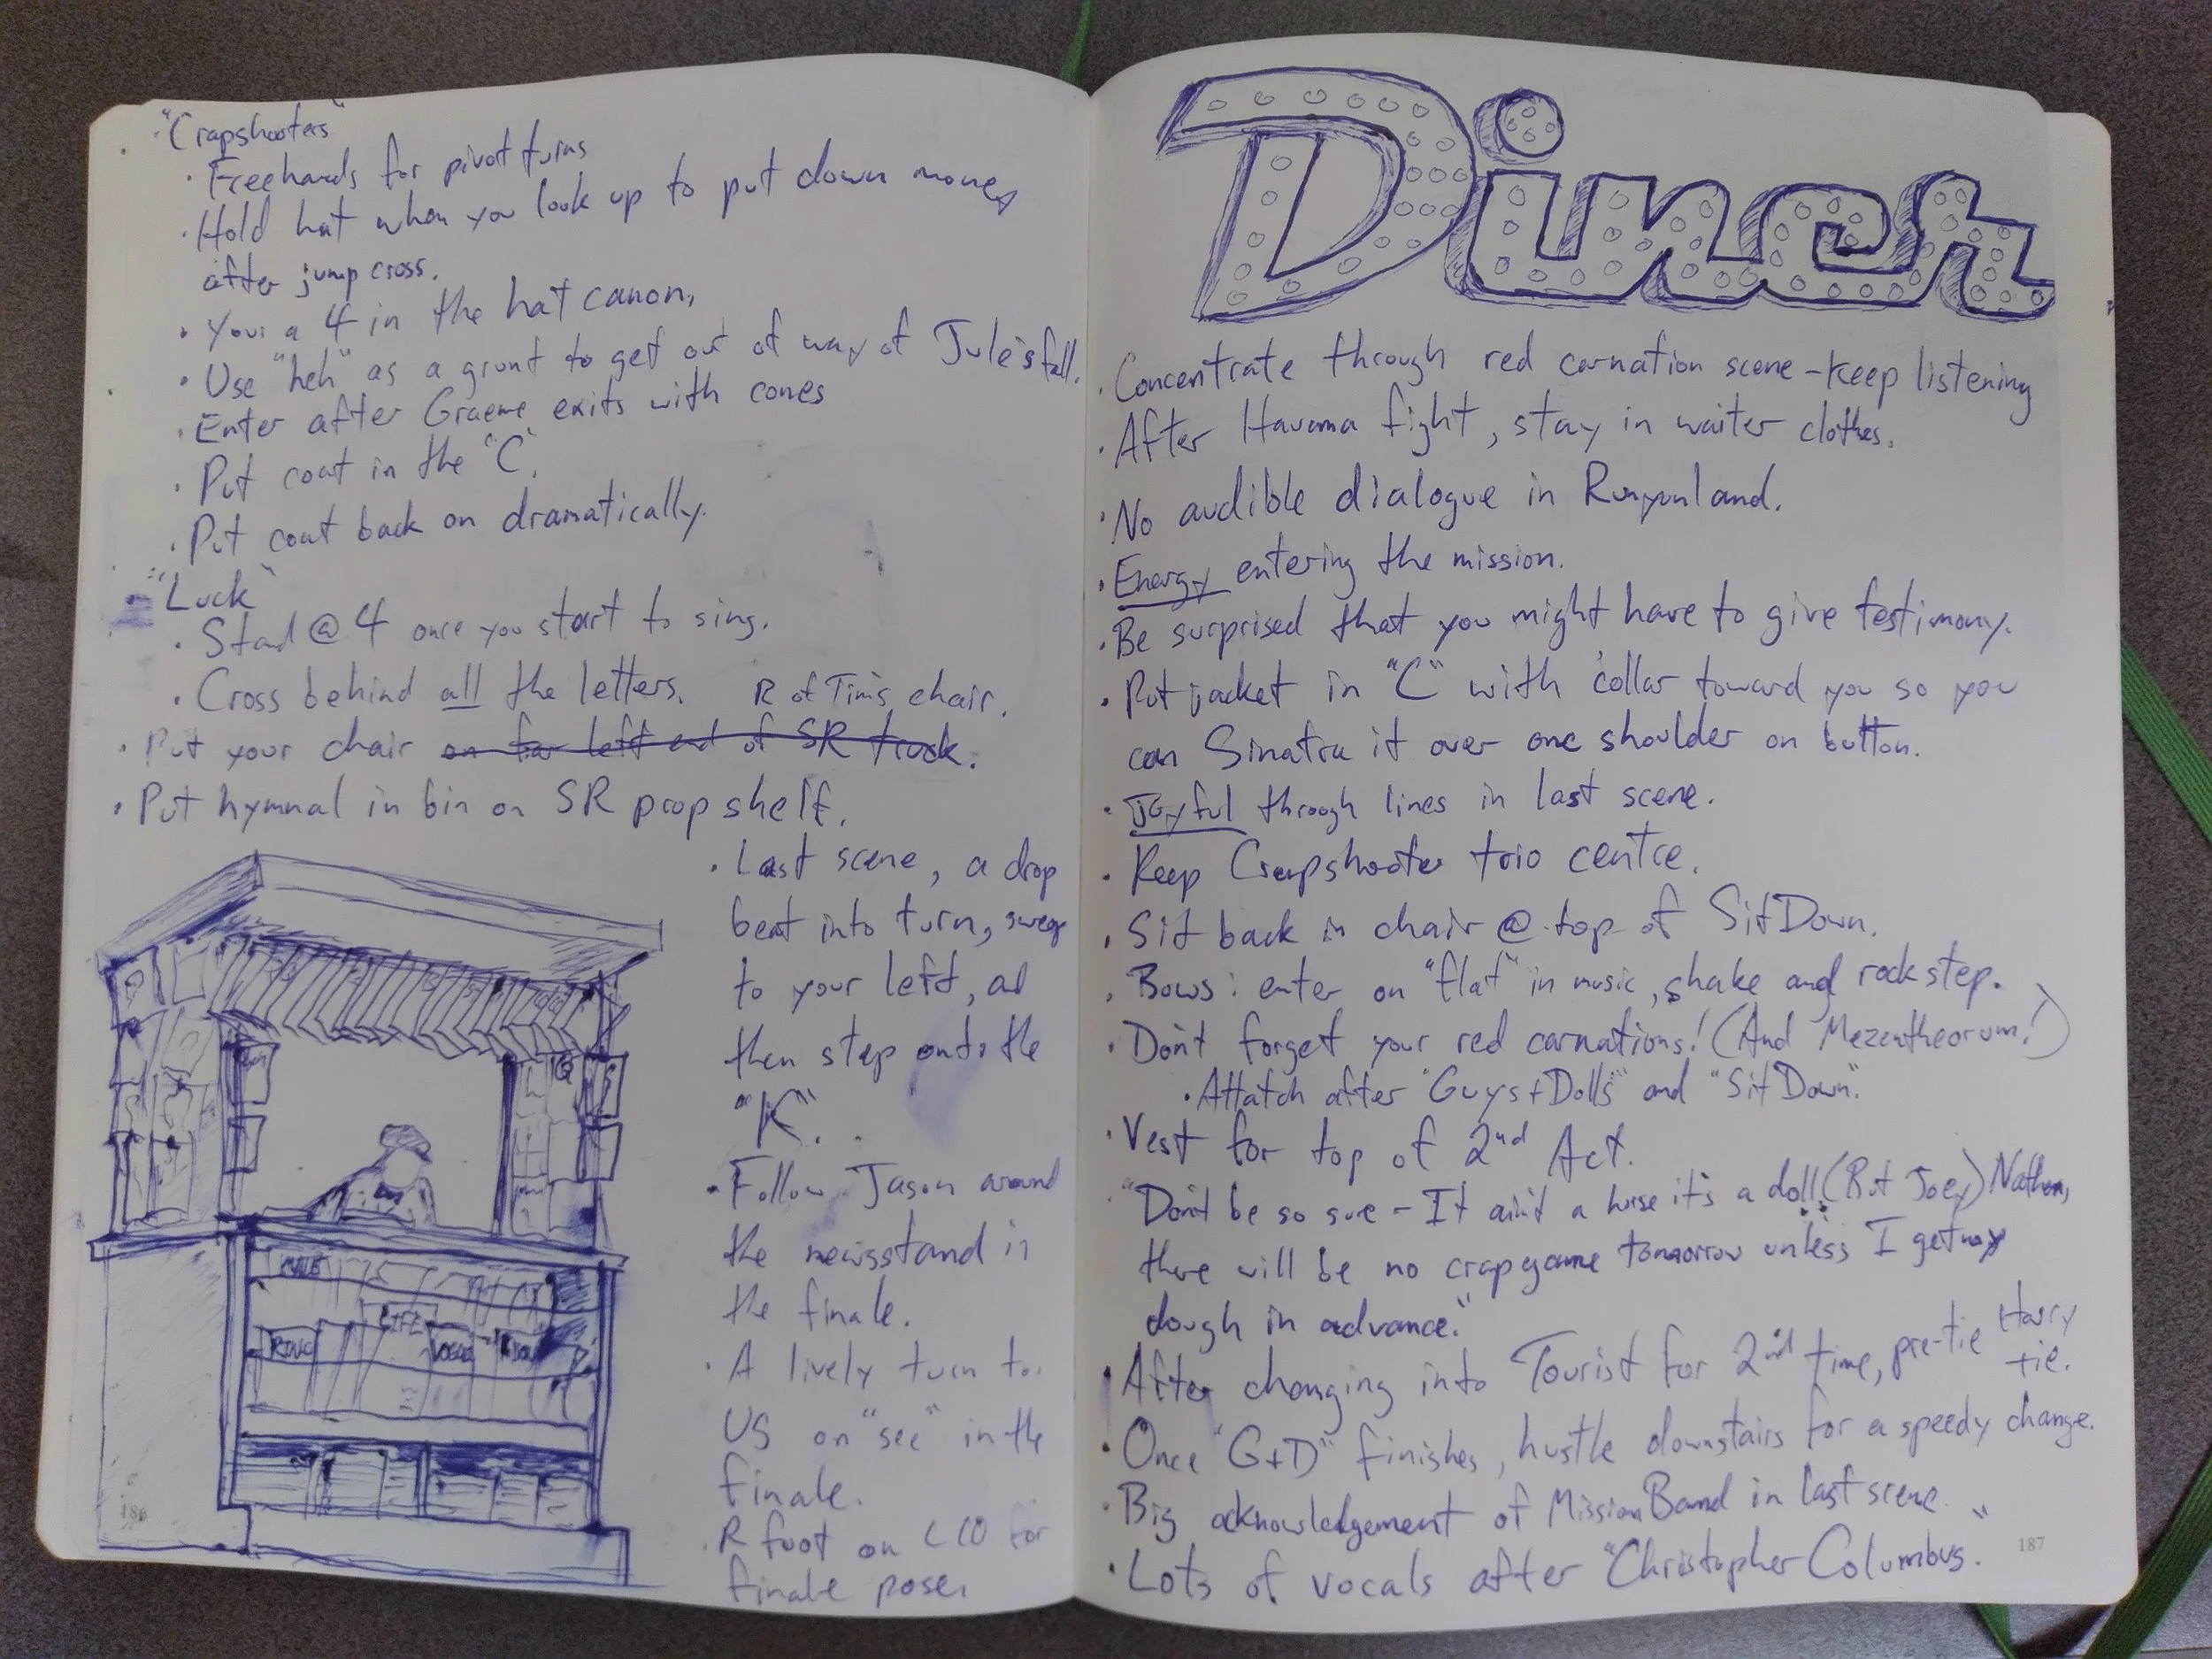 "Crapshooters"
· Freehands for pivot turns
· Hold hat when you look up to put down money
after jump cross.
· You: a 4 in the hat canon,
· Use "heh" as a grunt to get out of way of Jule's fall.
· Enter after Graeme exits with cones
· Put coat in the "C".
· Put coat back on dramatically.
"Luck"
· Stand @ 4 once you start to sing.
· Cross behind all the letters.
R of Tim's chair.
· Put your chair on far left end of SR truck.
· Put hymnal in bin on SR prop shelf.
· Last scene, a drop
beat into turn, sweep
to your left, ad
then step onto the
"K".
· Follow Jason around
the newsstand in
the finale.
· A lively turn to
US on "see" in the
finale.
· R foot on for
finale pose.
LIFE
RING
VOGUE
186
Diner
· Concentrate through red carnation scene - keep listening
· After Havana fight, stay in waiter clothes.
· No audible dialogue in Runyonland.
· Energy entering the mission.
· Be surprised that you might have to give testimony.
· Put jacket in "C" with collar toward you so you
can Sinatra it over one shoulder on button.
· Joyful through lines in last scene.
· Keep Crapshooter trio centre.
· Sit back in chair @ top of SitDown.
· Bows: enter on "flat" in music, shake and rock step.
· Don't forget your red carnations! (And Mezentheorum!)
· Attatch after "Guys + Dolls" and "Sit Down".
· Vest for top of 2nd Act.
· "Don't be so sure - It ain't a horse it's a doll. (But Joey) Nathan,
there will be no crapgame tomorrow unless I get my
dough in advance."
· After changing into Tourist for 2nd time, pre-tie Harry
tie.
· Once "G+D" finishes, hustle downstairs for a speedy change.
· Big acknowledgement of Mission Band in last scene
· Lots of vocals after "Christopher Columbus."
187